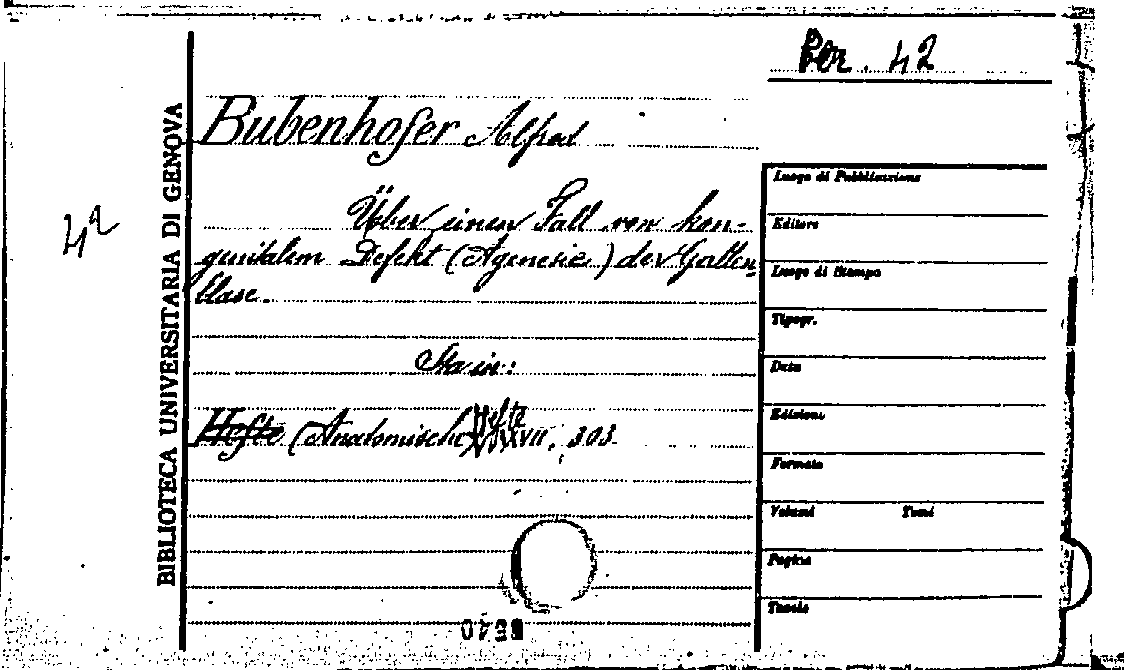 Per. 42
Bubenhofer Alfred
42
BIBLIOTECA UNIVERSITARIA DI GENOVA
Über einen Fall von kon-
genitalem Defekt (Agenesie) der Gallen-
blase.
Sta in:
Hefte (Anatomische XXVII, 303.
Luogo di Pubblicazione
Editore
Luogo di Stampa
Tipogr.
Data
Edizione
Formato
Volumi Tomi
Pagine
Tavole